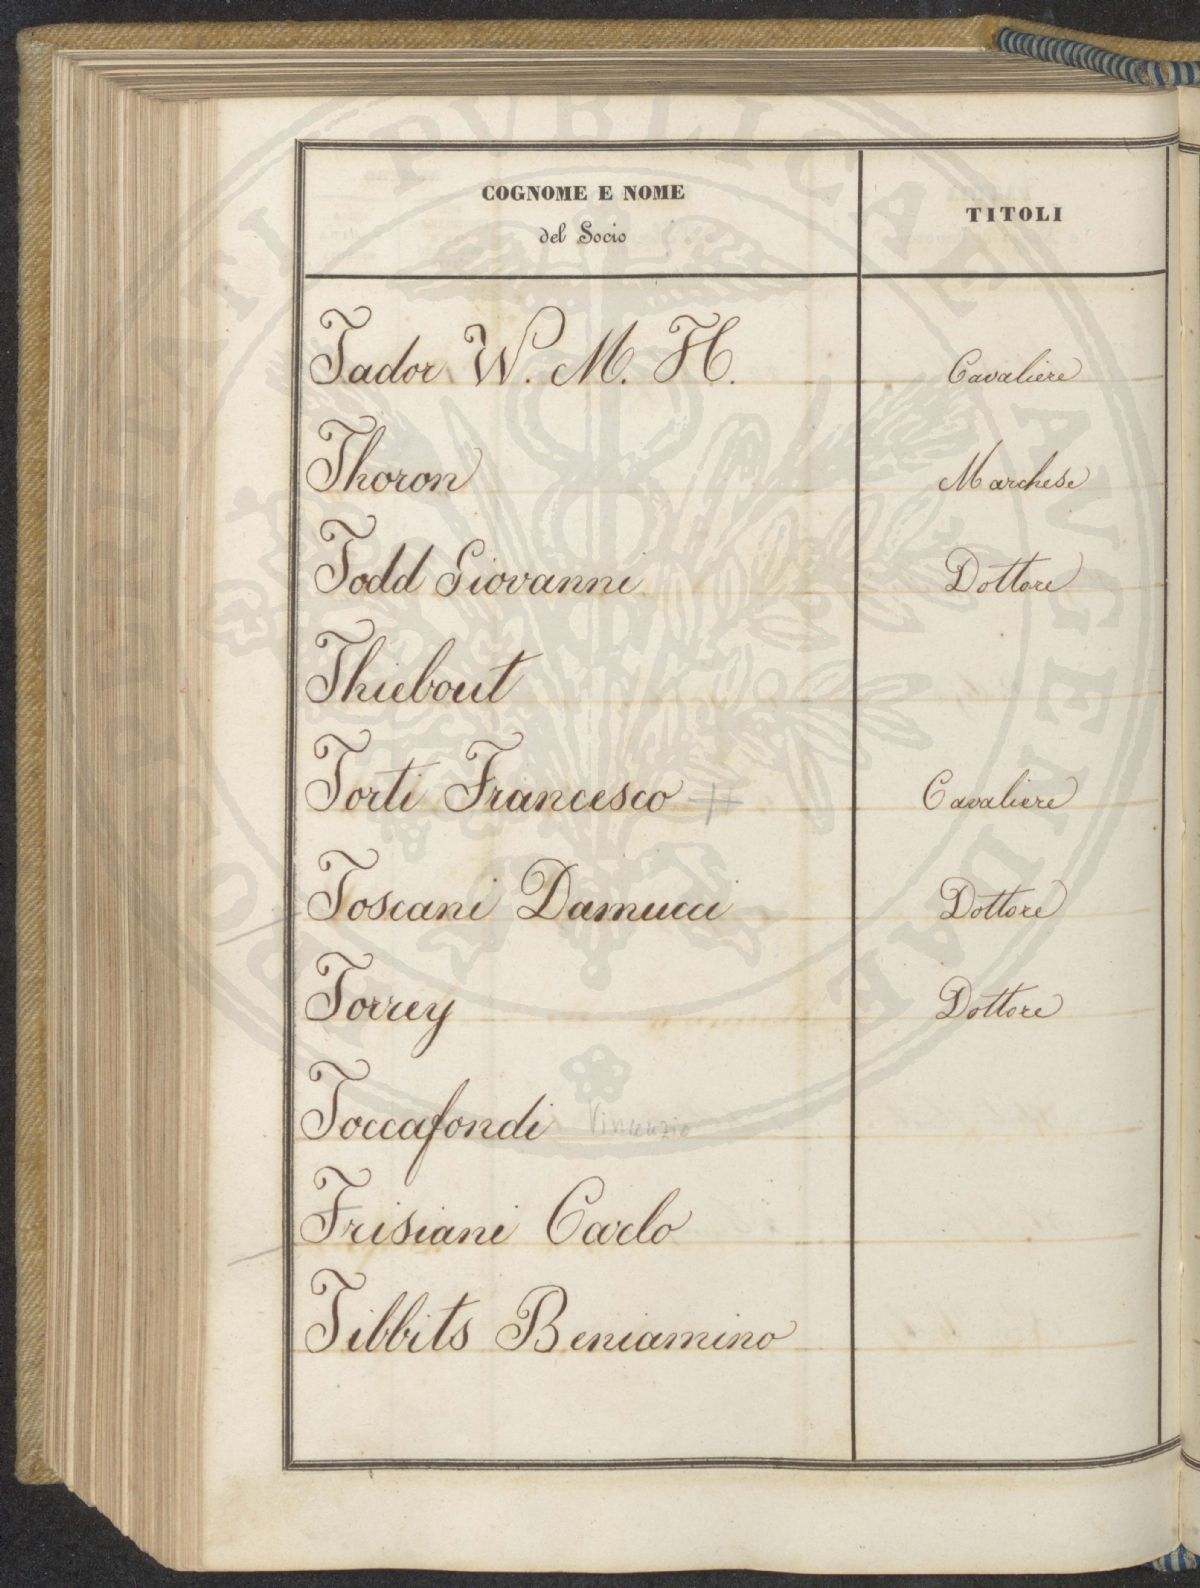 COGNOME E NOME
del Socio
TITOLI
Tador W. M. H. Cavaliere
Thoron Marchese
Todd Giovanni Dottore
Thiebout
Torti Francesco Cavaliere
Toscani Damucci Dottore
Torrey Dottore
Toccafondi Vincenzio
Trisiani Carlo
Tibbits Beniamino